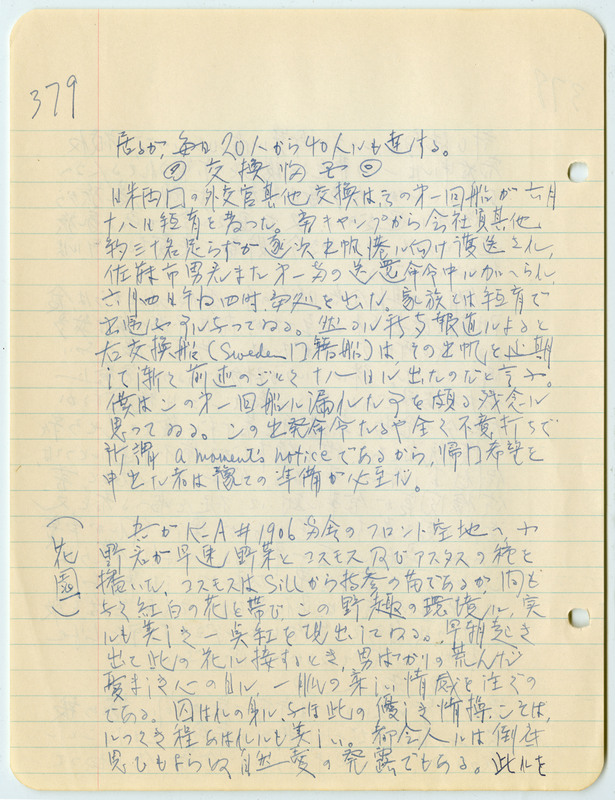 379
居るが、毎日20人から40人にも達する。
◎交換船でも◎
日米両国の外交官其他交換はその第一回船が六月
十八日紐育を立った。当キャンプから会社員其他
約三十名足らずが逐次出帆港に向け護送され、
佐藤市男君また第一号の送還命令中に加へられ、
六月四日午后四時当処を出た。家族とは紐育で
出遇ふ事になってゐる。然るに新章報道によると
右交換船(Sweden国籍船)はその出帆を延期
して漸く前述のごとく十八日に出たのだと言ふ。
僕はこの第一回船に漏れた事を頗る残念に
思ってゐる。この出発命令たるや全く不意打ちで
所謂 a moment's noticeであるから、帰国希望を
申出た者は豫ての準備が必至だ。
(花園)
吾が K-A #1906 号舎のフロント空地へ
野君が早速野菜とコスモス及びアスタスの種を
播いた。コスモスは Sill から持参の苗であるが、間も
なく紅白の花を帯び、この野趣の環境に、実
にも美しき一点紅を現出してゐる。早朝起き
出て此の花に接するとき、男ばかりの荒んだ
憂ましき心の自に、一脈の楽しい情感を注ぐの
である。囚はれの身に与ふ此の優しき情操こそは、
につくき程あはれにも美しい。都会人には倒底
思ひもよらぬ自然愛の発露でもある。此れを